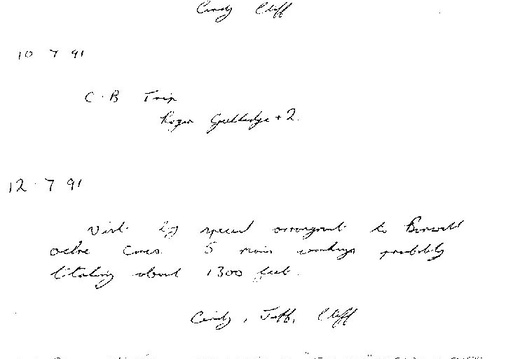 Cindy Cliff
10 7 91
C.B Trip
Roger +2.
12.7.91
Visit by special arrangment to
ochre Caves. 5 main workings probably
totaling about 1300 feet.
Cindy, Jeff, Cliff